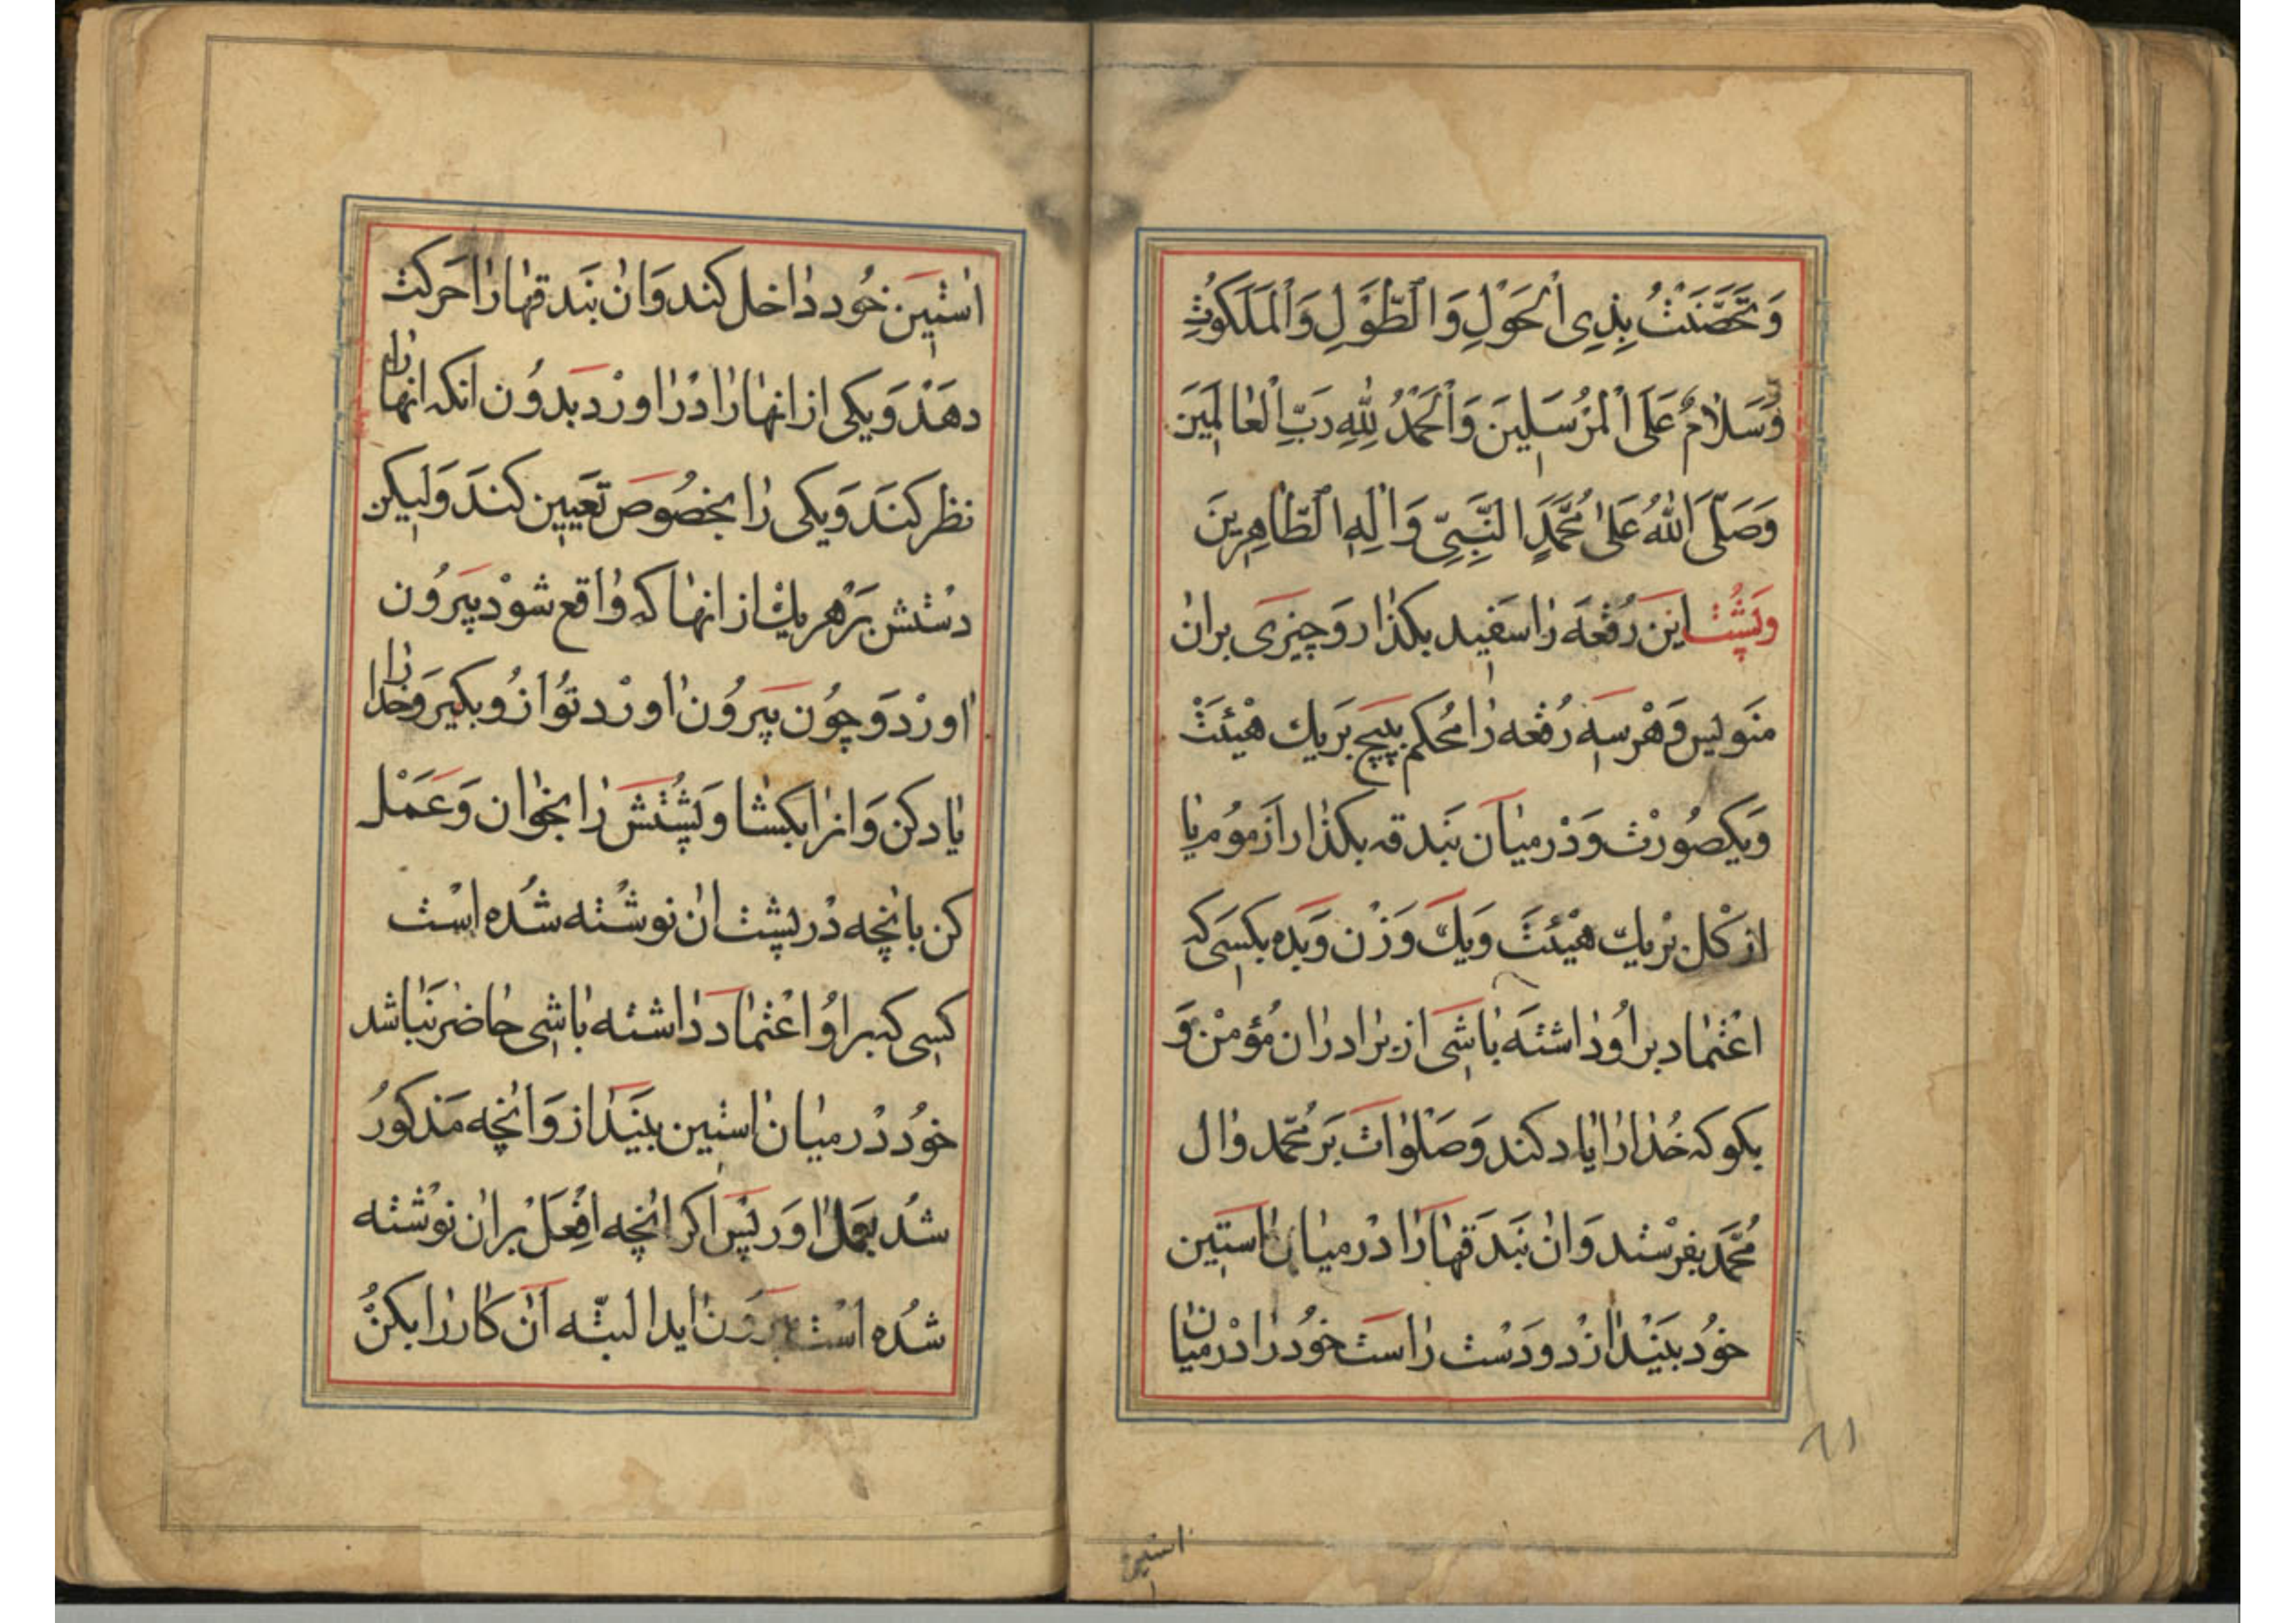 وَتَحَصَّنَتْ بِذِی الْحَوْلِ وَالطَّوْلِ وَالْمَلَکُوتِ
وَسَلَامٌ عَلَی الْمُرْسَلِینَ وَالْحَمْدُ لِلّٰهِ رَبِّ الْعَالَمِینَ
وَصَلَّی اللّٰهُ عَلیٰ مُحَمَّدٍ النَّبِیِّ وَاٰلِهِ الطَّاهِرِینَ
وپشت این رقعه را سفید بکذار و چیزی بران
منویس و هر سه رقعه را محکم بپیچ بر یك هیئت
و یکصورت و در میان بندقه بکذار از مومیا
از کل بر یك هیئت و یك وزن و بده بکسی که
اعتماد بر او داشته باشی از برادران مؤمن و
بکو که خدا را یاد کند و صلوات بر محمد وال
محمد بفرستد و ان بندقها را در میان استین
خود بیندازد و دست راست خود را در میان
۶۱
استین
استین خود داخل کند و ان بندقها را حرکت
دهد و یکی از انها را در اورد بدون انکه انها را
نظر کند و یکی را بخصوص تعیین کند ولیکن
دستش بر هر یك از انها که واقع شود بیرون
اورد و چون بیرون اورد تو از او بکیر و خدا را
یاد کن و انرا بکشا و پشتش را بخوان و عمل
کن بانچه در پشت ان نوشته شده است
کسی که بر او اعتماد داشته باشی حاضر نباشد
خود در میان استین بینداز و انچه مذکور
شد بعمل اور پس اکر انچه افعل بران نوشته
شده است بیرون اید البته ان کار را بکن